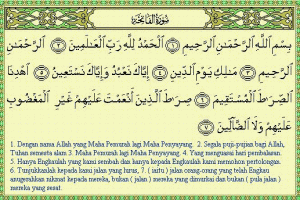 سُورَةُ الْفَاتِحَةِ
بِسْمِ اللَّهِ الرَّحْمَٰنِ الرَّحِيمِ ﴿١﴾ الْحَمْدُ لِلَّهِ رَبِّ الْعَالَمِينَ ﴿٢﴾ الرَّحْمَٰنِ
الرَّحِيمِ ﴿٣﴾ مَالِكِ يَوْمِ الدِّينِ ﴿٤﴾ إِيَّاكَ نَعْبُدُ وَإِيَّاكَ نَسْتَعِينُ ﴿٥﴾ اهْدِنَا
الصِّرَاطَ الْمُسْتَقِيمَ ﴿٦﴾ صِرَاطَ الَّذِينَ أَنْعَمْتَ عَلَيْهِمْ غَيْرِ الْمَغْضُوبِ
عَلَيْهِمْ وَلَا الضَّالِّينَ ﴿٧﴾
1. Dengan nama Allah yang Maha Pemurah lagi Maha Penyayang. 2. Segala puji-pujian bagi Allah,
Tuhan semesta alam 3. Maha Pemurah lagi Maha Penyayang. 4. Yang menguasai hari pembalasan.
5. Hanya Engkaulah yang kami sembah dan hanya kepada Engkaulah kami memohon pertolongan.
6. Tunjukkanlah kepada kami jalan yang lurus, 7. ( iaitu ) jalan orang-orang yang telah Engkau
anugerahkan nikmat kepada mereka, bukan ( jalan ) mereka yang dimurkai dan bukan ( pula jalan )
mereka yang sesat.